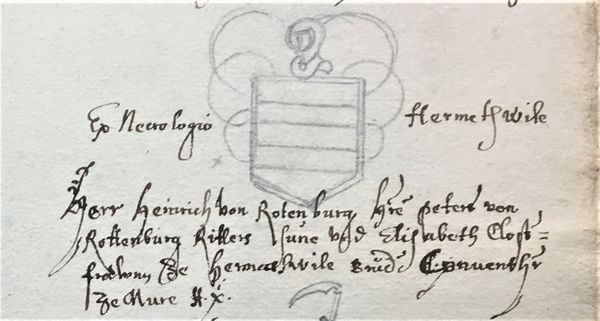 Ex Necrologio Hermethwile
Herr Heinrich von Rotenburg Hrē peters von
Rottenburg Ritters sune vnd Elisabeth Clost=
frowen ze Hermatswile Conventhr̄
ze Mure